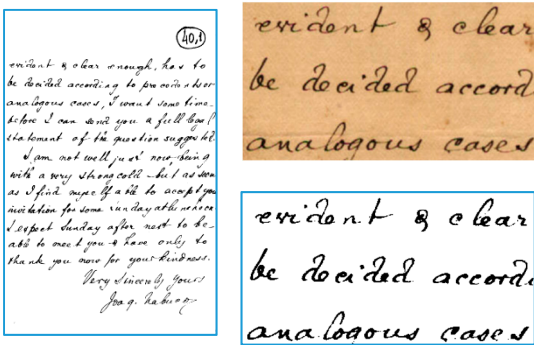 40,1
evident & clear enough, has to
be decided according to precedents or
analogous cases, I want some time
before I can send you a full legal
statement of the question suggested.
I am not well just now, being
with a very strong cold - but as soon
as I find myself able to accept your
invitation for some sunday afternoon
I expect Sunday after next to be
able to meet you & have only to
thank you now for your kindness.
Very Sincerely yours
Joaq. Nabuco
evident & clear
be decided accord
analogous cases
evident & clear
be decided accordi
analogous cases